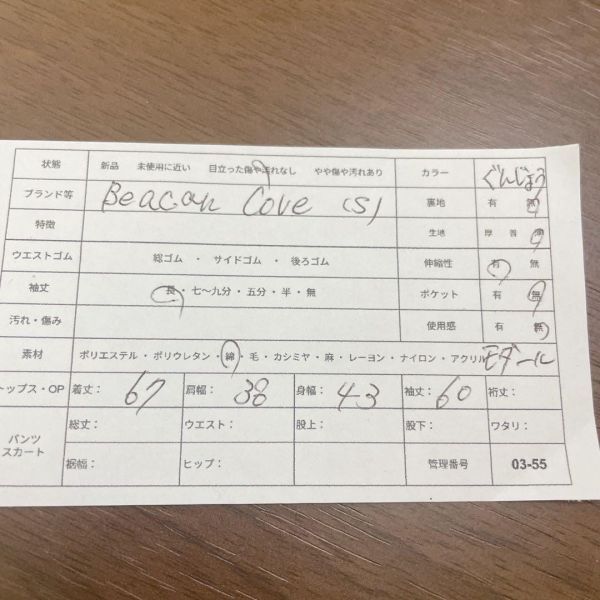 状態 新品 未使用に近い 目立った傷や汚れなし やや傷や汚れあり カラー ぐんじょう
ブランド等 Beacon Cove (S) 裏地 有 無
特徴 生地 厚 普 薄
ウエストゴム 総ゴム ・ サイドゴム ・ 後ろゴム 伸縮性 有 無
袖丈 長・七〜九分・五分・半・無 ポケット 有 無
汚れ・傷み 使用感 有 無
素材 ポリエステル・ポリウレタン・綿・毛・カシミヤ・麻・レーヨン・ナイロン・アクリル モダール
トップス・OP 着丈: 67 肩幅: 38 身幅: 43 袖丈: 60 裄丈:
パンツ スカート 総丈: ウエスト: 股上: 股下: ワタリ:
裾幅: ヒップ: 管理番号 03-55